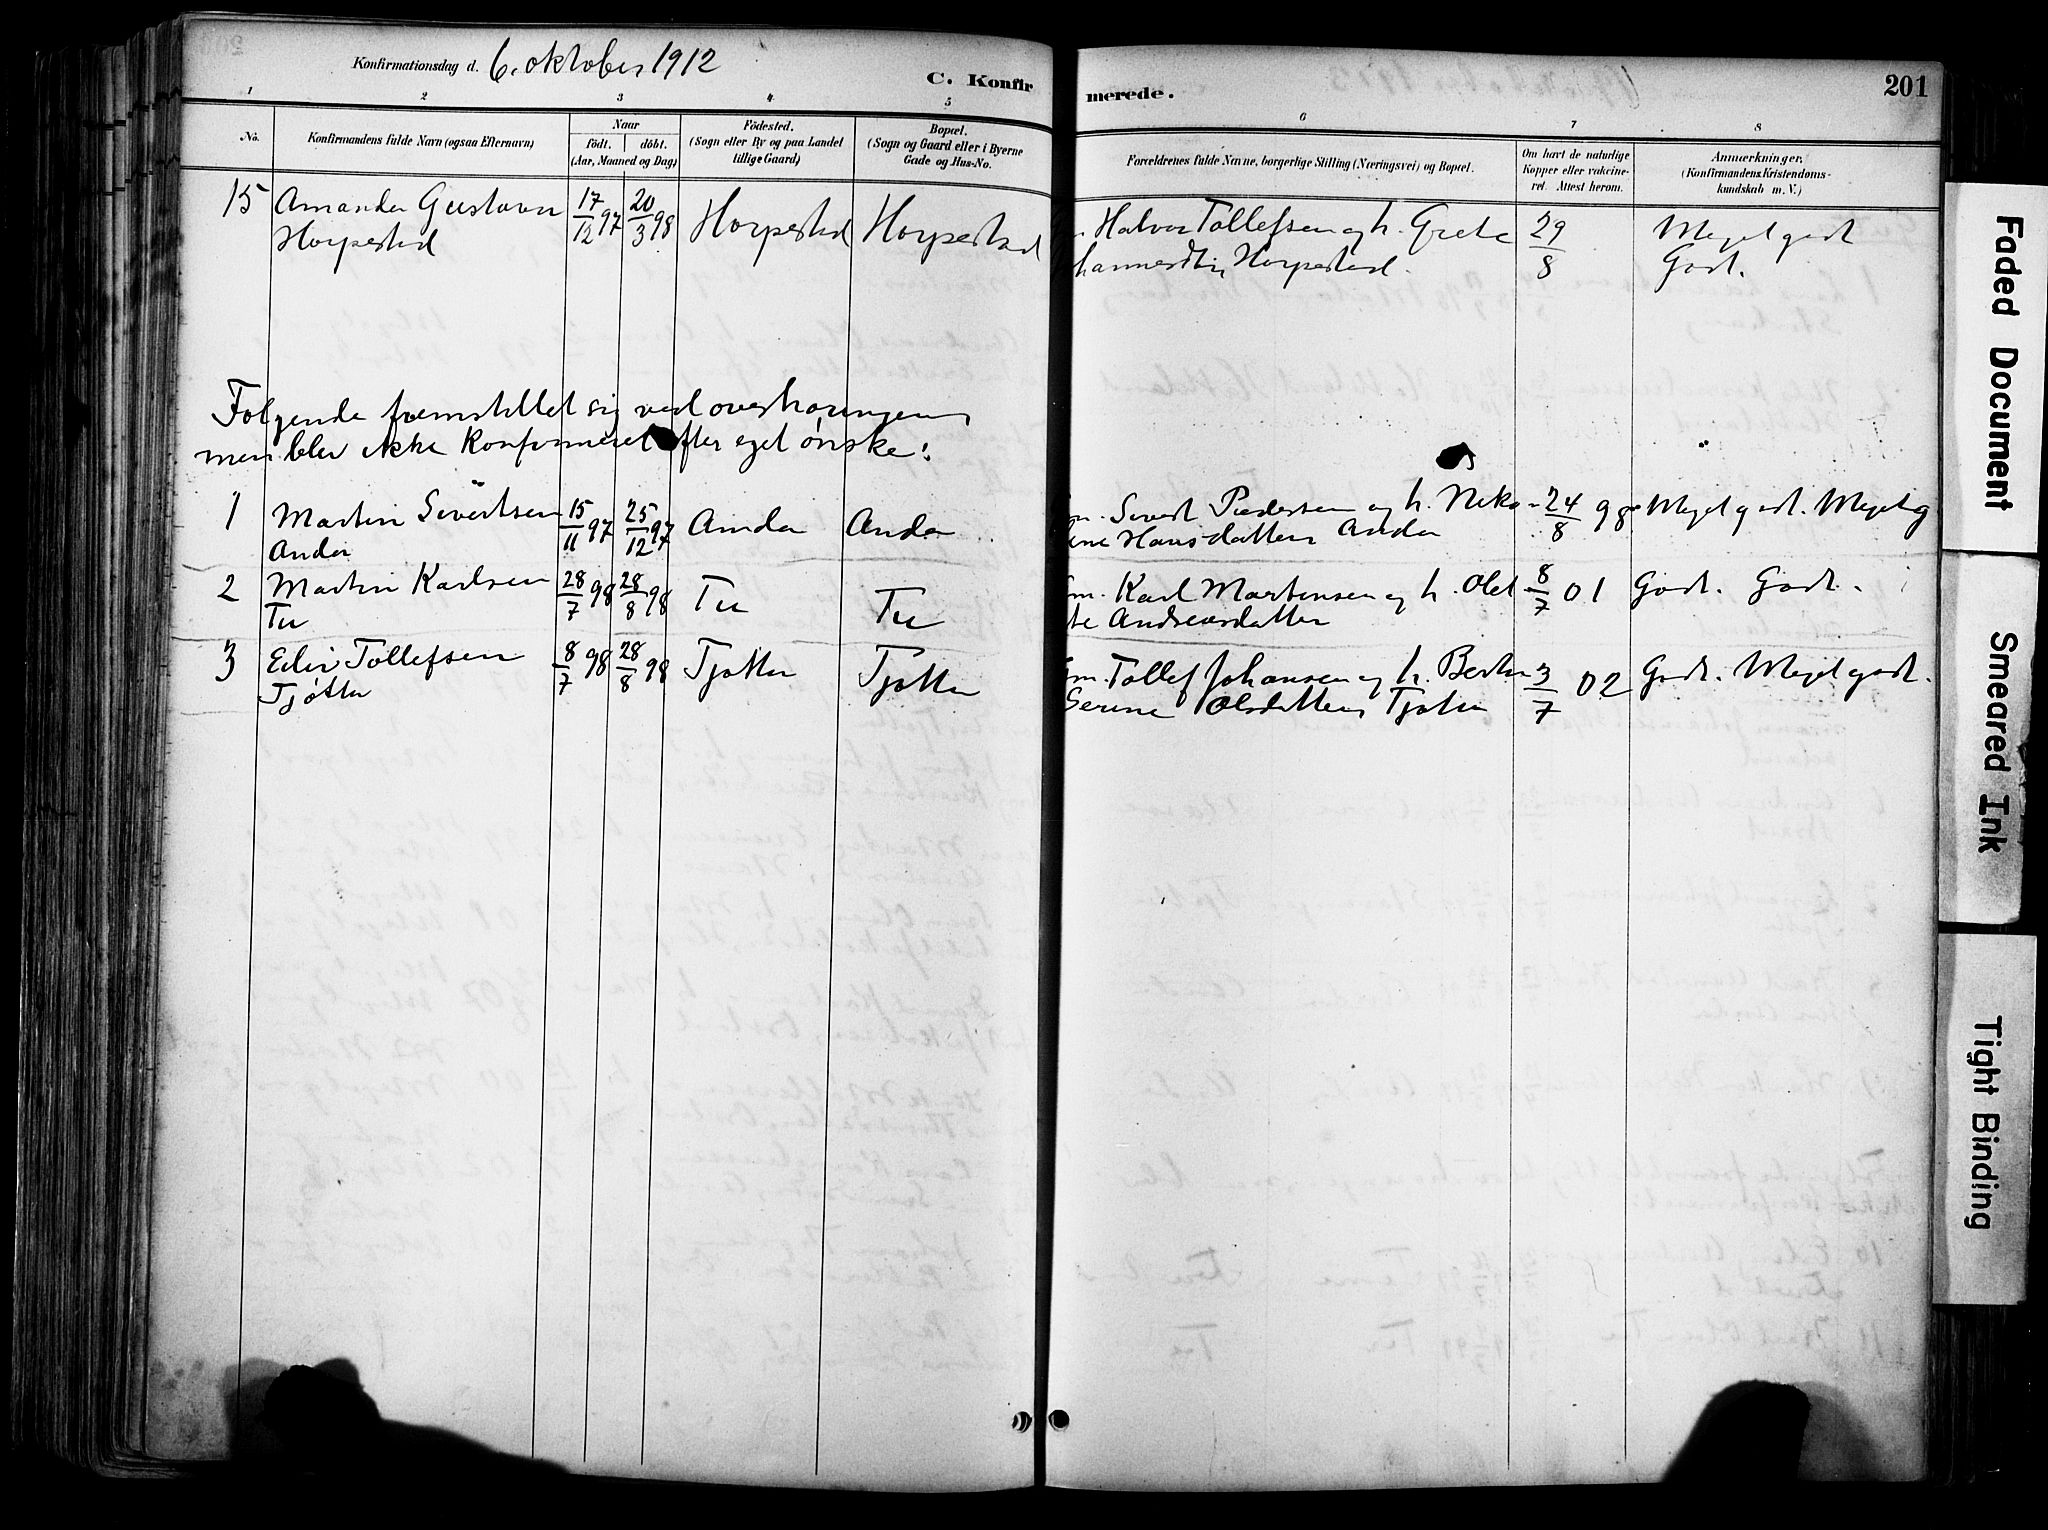 Konfirmationsdag d. 6. oktober 1912
C. Konfir
merede.
201
1 2 3 4 5 6 7 8
No.
Konfirmandens fulde Navn (ogsaa Efternavn)
Naar
født. døbt.
(Aar, Maaned og Dag)
Fødested.
(Sogn eller By og paa Landet
tillige Gaard)
Bopæl.
(Sogn og Gaard eller i Byerne
Gade og Hus-No.
Forældrenes fulde Navne, borgerlige Stilling (Næringsvei) og Bopæl.
Om havt de naturlige
Kopper eller vakcine-
ret. Attest herom.
Anmærkninger.
(Konfirmandens Kristendoms-
kundskab m. V.)
15 Amanda Gustava 17/12 97 20/3 98 Horpestad Horpestad Halvor Tollefsen og h. Grete 29/8 Meget godt
Horpestad hannesdtr, Horpestad. Godt.
Følgende fremstillet sig ved overhøringen,
men blev ikke konfirmeret efter eget ønske:
1 Martin Sivertsen 15/11 97 25/12 97 Anda Anda Gm. Sivert Pedersen og h. Niko- 24/8 98 Meget godt. Meget g
Anda ine Hansdatter Anda
2 Martin Karlsen 28/7 98 28/8 98 Tu Tu Gm. Karl Martinsen og h. Olet 8/7 01 Godt. Godt.
Tu te Andreasdatter
3 Eilif Tollefsen 8/7 98 28/8 98 Tjøtta Tjøtta Gm. Tollef Johansen og h. Berta 3/7 02 Godt. Meget godt.
Tjøtta Serine Olsdatter, Tjøtta
Faded Document
Smeared Ink
Tight Binding